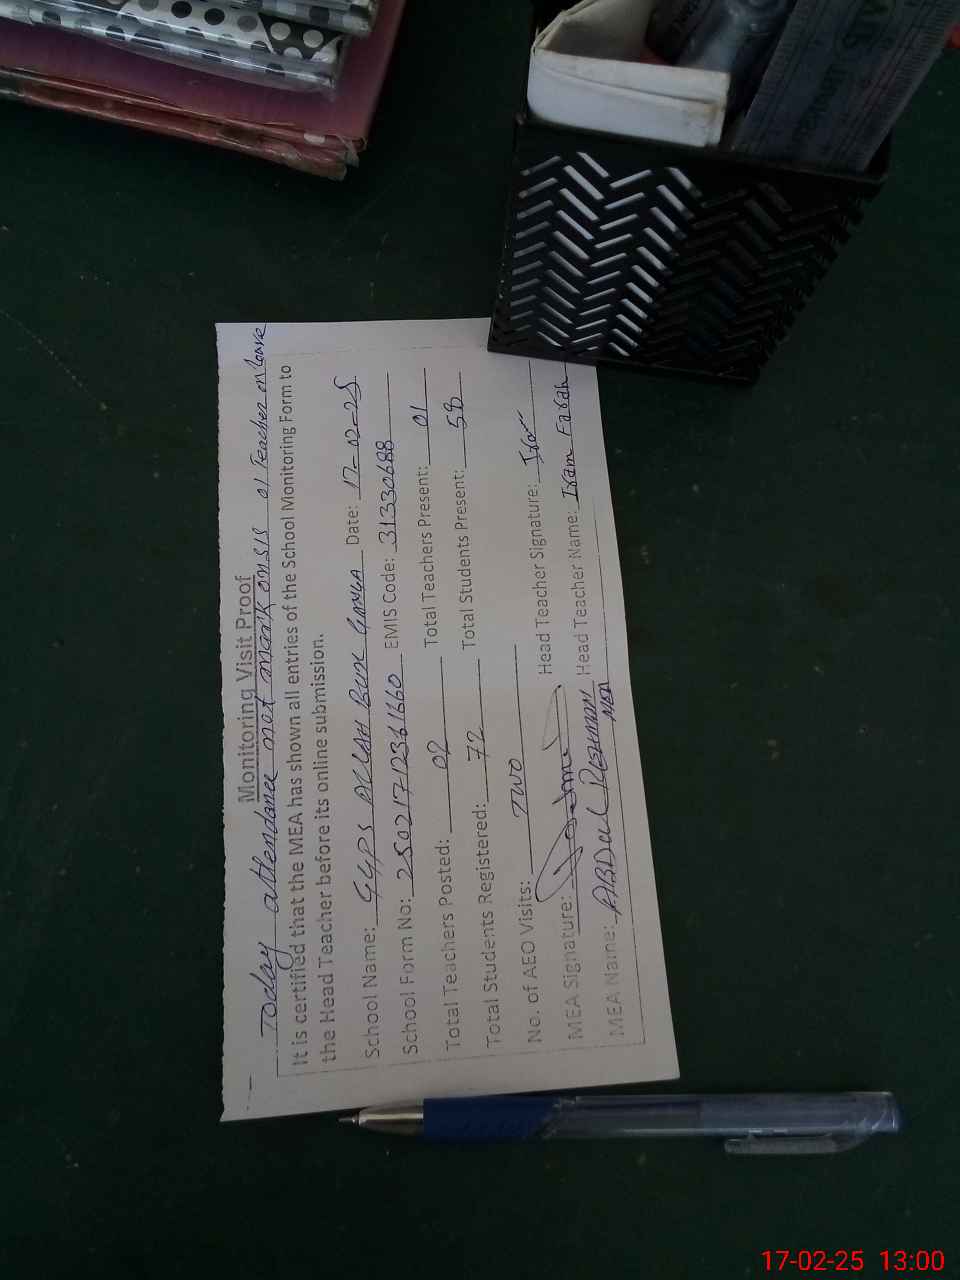 Monitoring Visit Proof
Today attendance not mark on SIS 01 Teacher on leave
It is certified that the MEA has shown all entries of the School Monitoring Form to
the Head Teacher before its online submission.
School Name: GGPS ALLAH BUX GANGA Date: 17-02-25
School Form No: 25021712361660 EMIS Code: 31330688
Total Teachers Posted: 02 Total Teachers Present: 01
Total Students Registered: 72 Total Students Present: 58
No. of AEO Visits: TWO
MEA Signature: Head Teacher Signature:
MEA Name: ABDul REHMAN Head Teacher Name: Iram Farah
MEA
17-02-25 13:00